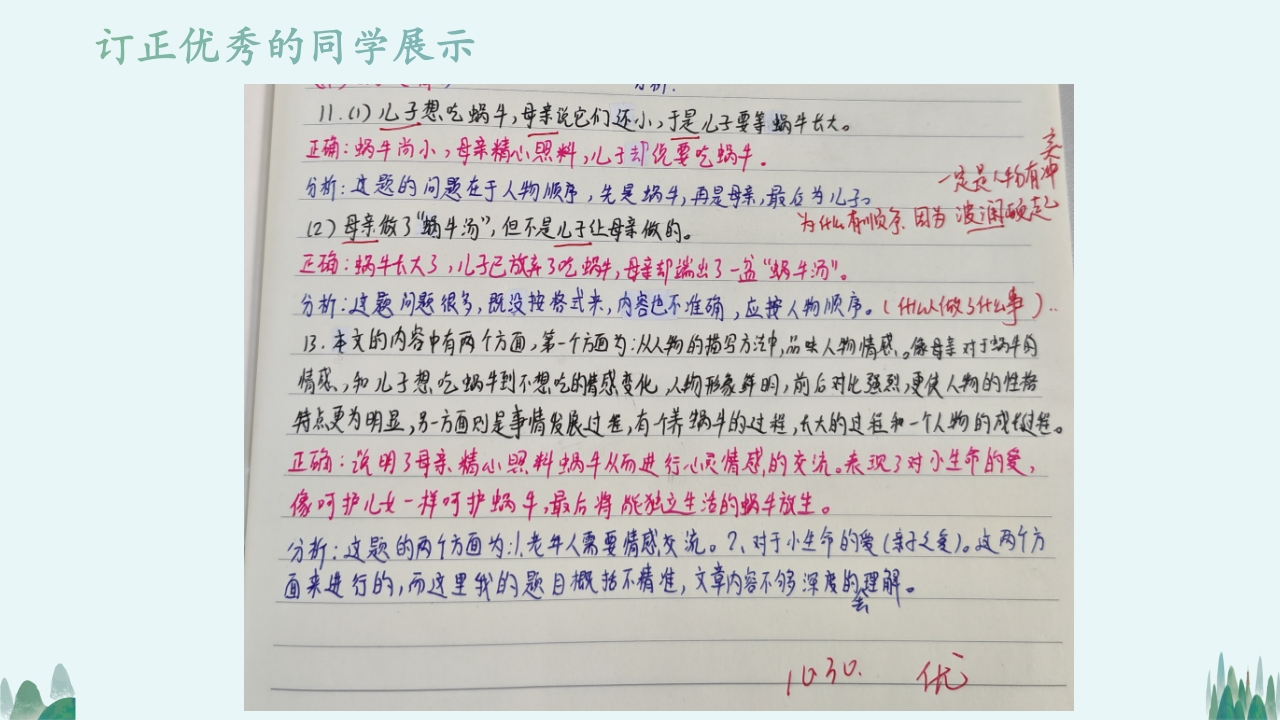 订正优秀的同学展示
分析:
11.(1)儿子想吃蜗牛,母亲说它们还小,于是儿子要等蜗牛长大。
正确:蜗牛尚小,母亲精心照料,儿子却说要吃蜗牛。
一定是人物有冲突
分析:这题的问题在于人物顺序,先是蜗牛,再是母亲,最后为儿子。
为什么有顺序 因为 波澜
(2)母亲做了“蜗牛汤”,但不是儿子让母亲做的。
正确:蜗牛长大了,儿子已放弃了吃蜗牛,母亲却端出了一盆“蜗牛汤”。
分析:这题问题很多,既没按格式来,内容也不准确,应按人物顺序。(什么人做了什么事)..
13.本文的内容中有两个方面,第一个方面为:从人物的描写方法中,品味人物情感。像母亲对于蜗牛的
情感,和儿子想吃蜗牛到不想吃的情感变化,人物形象鲜明,前后对比强烈,更使人物的性格
特点更为明显,另一方面则是事情发展过程,有个养蜗牛的过程,长大的过程和一个人物的成长过程。
正确:说明了母亲精心照料蜗牛从而进行心灵情感的交流。表现了对小生命的爱,
像呵护儿女一样呵护蜗牛,最后将能独立生活的蜗牛放生。
分析:这题的两个方面为:1.老年人需要情感交流。2.对于小生命的爱(亲子之爱)。这两个方
面来进行的,而这里我的题目概括不精准,文章内容不够深度的去理解。
10.30. 优